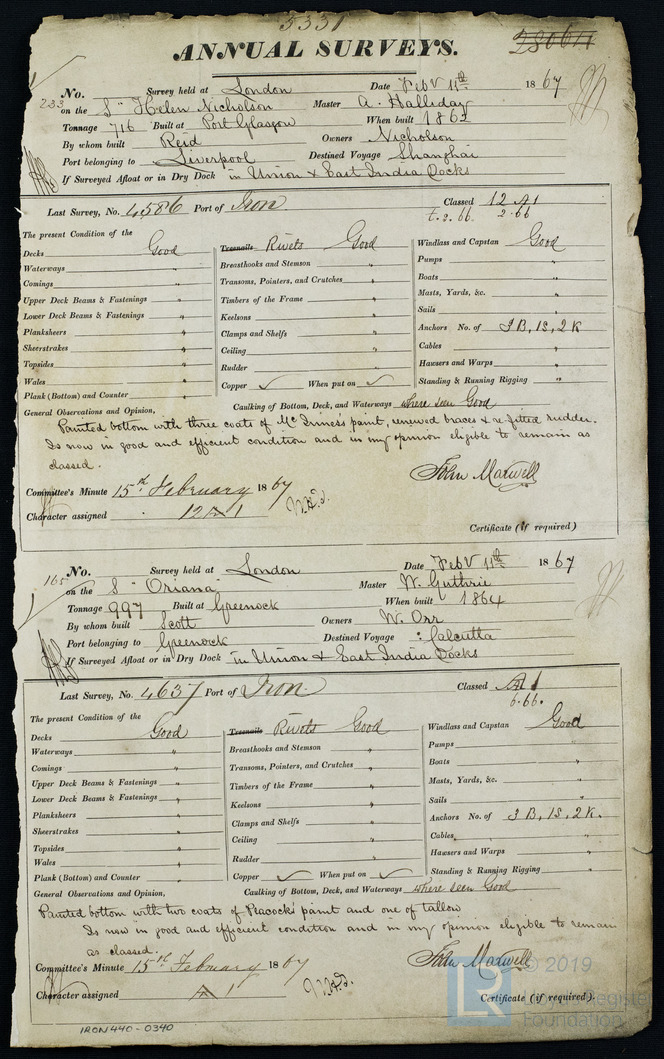 5331
ANNUAL SURVEYS.
No. Survey held at London Date Feby 11th 1867
233 on the S" Helen Nicholson Master A. Halliday
Tonnage 716 Built at Port Glasgow When built 1862
By whom built Reid Owners Nicholson
Port belonging to Liverpool Destined Voyage Shanghai
If Surveyed Afloat or in Dry Dock in Union & East India Docks
Last Survey, No. 4586 Port of Iron. Classed 12 A1
t.2.66. 2.66
The present Condition of the
Decks Good Treenails Rivets Good Windlass and Capstan Good
Waterways " Breasthooks and Stemson " Pumps "
Comings " Transoms, Pointers, and Crutches " Boats "
Upper Deck Beams & Fastenings " Timbers of the Frame " Masts, Yards, &c. "
Lower Deck Beams & Fastenings " Keelsons " Sails "
Planksheers " Clamps and Shelfs " Anchors No. of 3 B, 1S, 2 K
Sheerstrakes " Ceiling " Cables "
Topsides " Rudder " Hawsers and Warps "
Wales " Copper ✓ When put on ✓ Standing & Running Rigging "
Plank (Bottom) and Counter "
General Observations and Opinion, Caulking of Bottom, Deck, and Waterways where seen Good
Painted bottom with three coats of McInness paint, renewed braces & re fitted rudder.
Is now in good and efficient condition and in my opinion eligible to remain as
classed.
John Maxwell
Committee's Minute 15th February 1867
Character assigned 12 A 1
Certificate (if required)
No. Survey held at London Date Feby 11th 1867
165 on the S" Oriana Master W. Guthrie
Tonnage 997 Built at Greenock When built 1864
By whom built Scott Owners W. Orr
Port belonging to Greenock Destined Voyage Calcutta
If Surveyed Afloat or in Dry Dock in Union & East India Docks
Last Survey, No. 4637 Port of Iron. Classed A1
6.66.
The present Condition of the
Decks Good Treenails Rivets Good Windlass and Capstan Good
Waterways " Breasthooks and Stemson " Pumps "
Comings " Transoms, Pointers, and Crutches " Boats "
Upper Deck Beams & Fastenings " Timbers of the Frame " Masts, Yards, &c. "
Lower Deck Beams & Fastenings " Keelsons " Sails "
Planksheers " Clamps and Shelfs " Anchors No. of 3 B, 1S, 2 K.
Sheerstrakes " Ceiling " Cables "
Topsides " Rudder " Hawsers and Warps "
Wales " Copper ✓ When put on ✓ Standing & Running Rigging "
Plank (Bottom) and Counter "
General Observations and Opinion, Caulking of Bottom, Deck, and Waterways where seen Good
Painted bottom with two coats of Peacocks paint and one of tallow
Is now in good and efficient condition and in my opinion eligible to remain
as classed.
John Maxwell
Committee's Minute 15th February 1867
Character assigned A 1
Certificate (if required).
IRON440-0340
LR © 2019
Lloyd's Register
Foundation